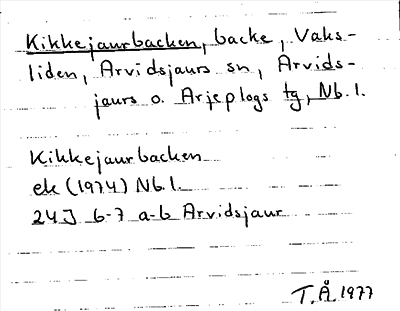 Kikkejaurbacken, backe, Vaks-
liden, Arvidsjaurs sn, Arvids-
jaurs o. Arjeplogs tg, Nb. l.
Kikkejaurbacken
ek (1974) Nb. l.
24J 6-7 a-b Arvidsjaur
T.Å. 1977